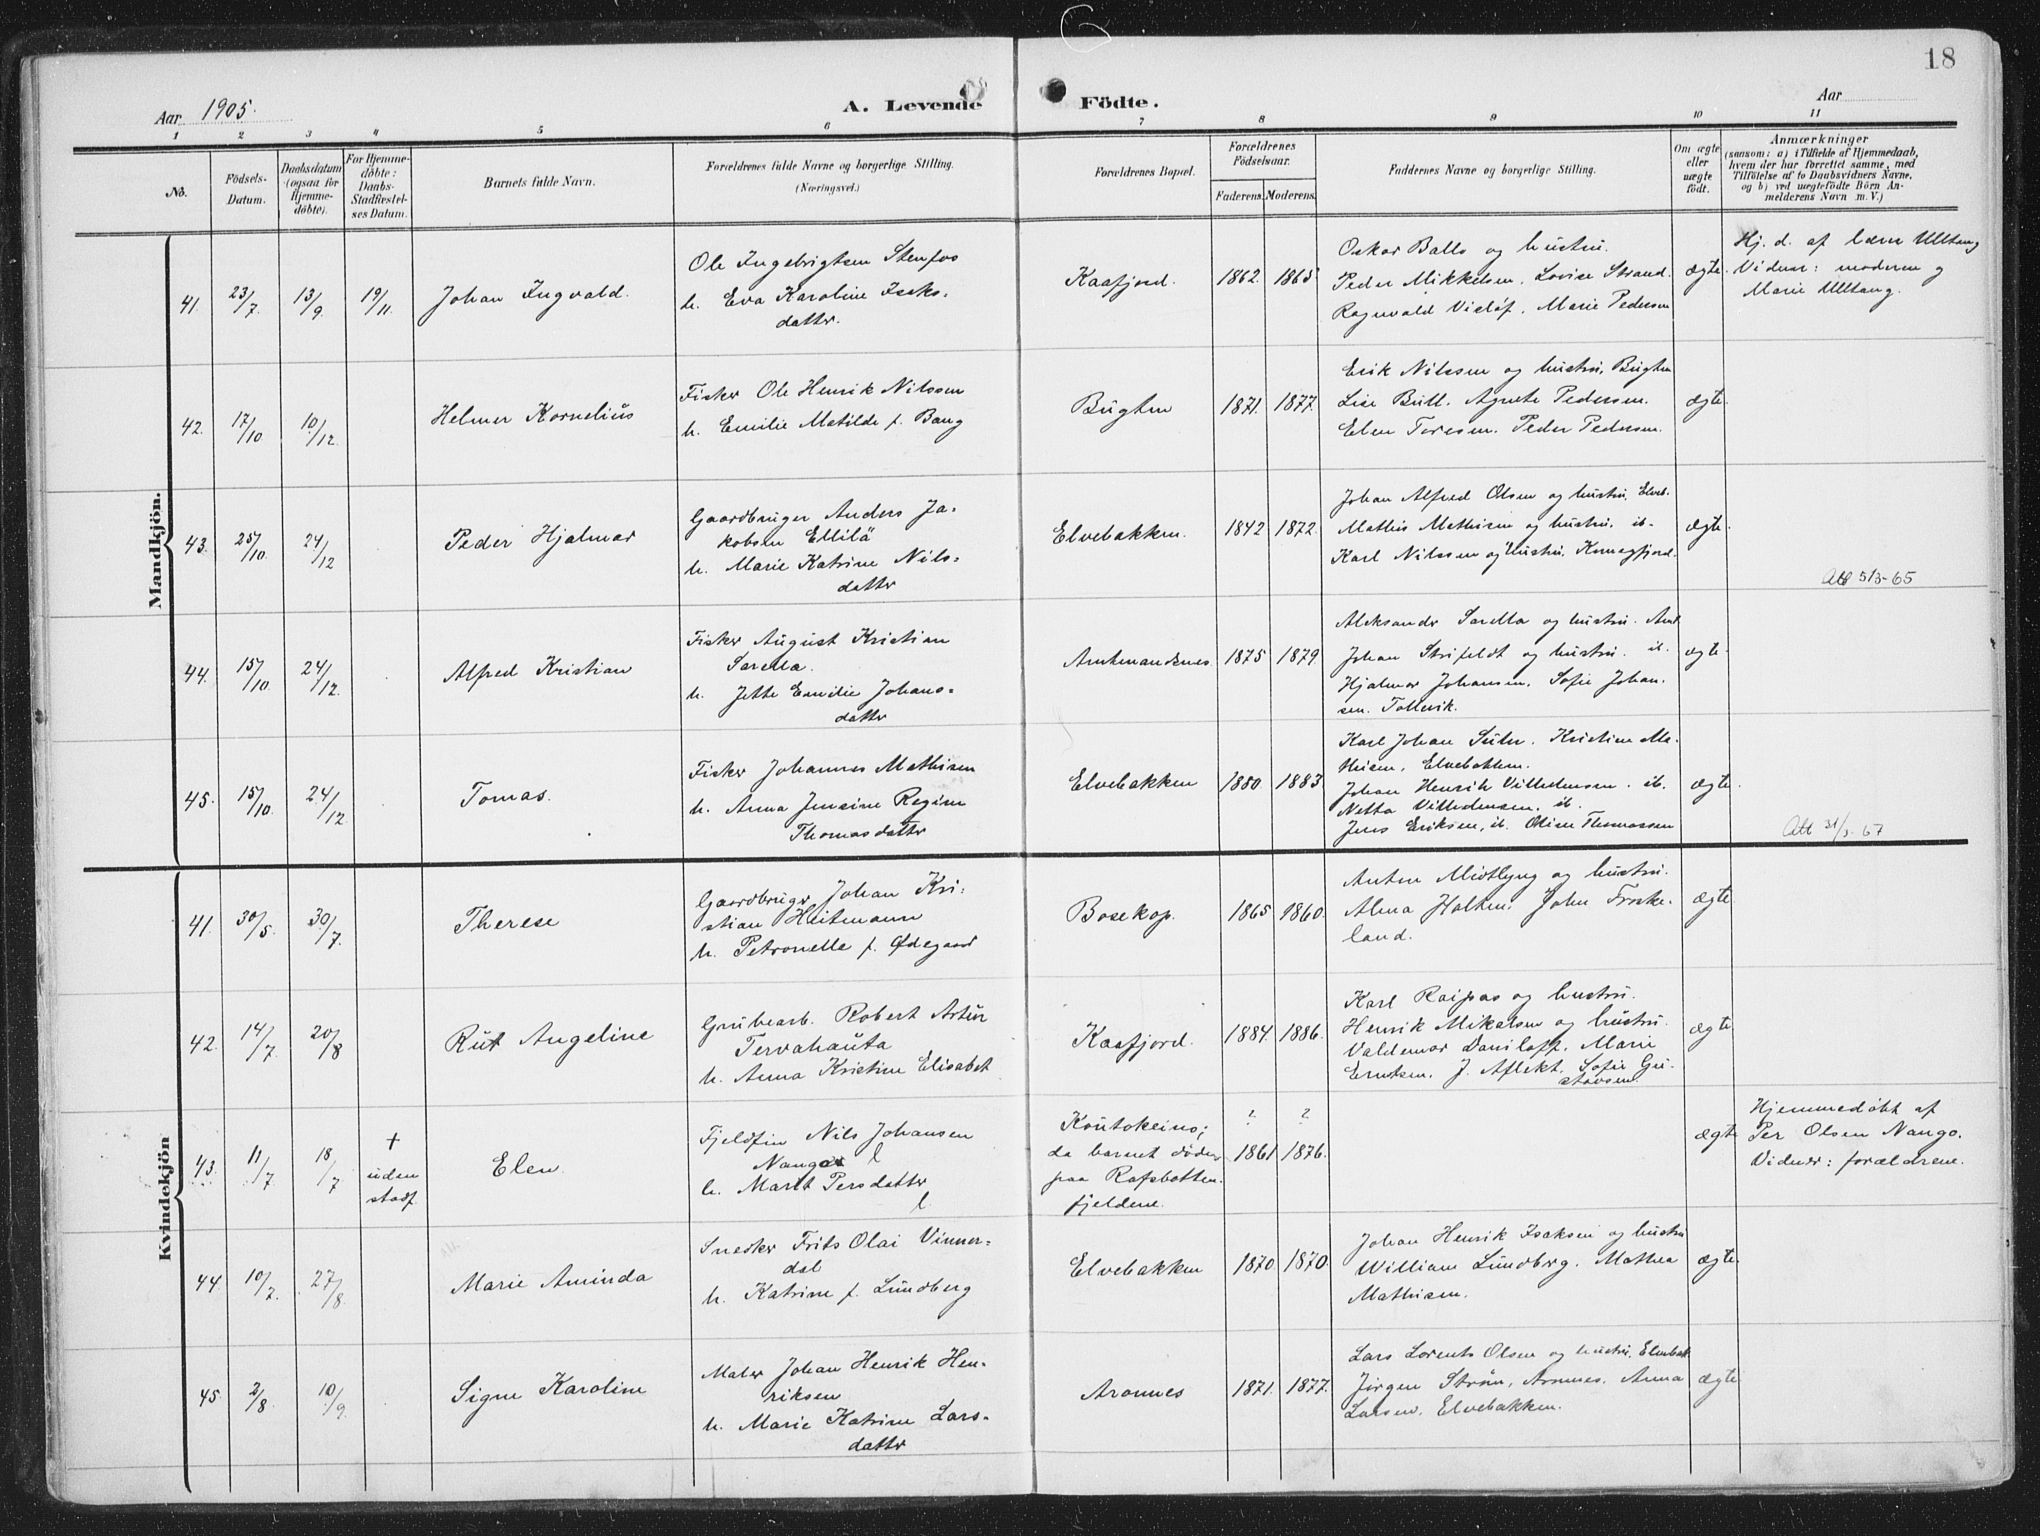 18
Aar 1905.
A. Levende Födte.
Aar
1 2 3 4 5 6 7 8 9 10 11
No.
Födsels-Datum.
Daabsdatum (ogsaa for Hjemme-döbte).
For Hjemme-döbte: Daabs-Stadfæstel-ses Datum.
Barnets fulde Navn.
Forældrenes fulde Navne og borgerlige Stilling.
(Næringsvei.)
Forældrenes Bopæl.
Forældrenes Födselsaar.
Faderens. Moderens.
Faddernes Navne og borgerlige Stilling.
Om ægte eller uægte födt.
Anmærkninger
(saasom: a) i Tilfælde af Hjemmedaab,
hvem der har forrettet samme, med
Tilföielse af to Daabsvidners Navne,
og b) ved uægtefödte Börn An-
melderens Navn m. V.)
Mandkjön.
41. 23/7. 13/9 19/11. Johan Ingvald.
Ole Ingebrigtsen Stenfos
h. Eva Karoline Isaks-
datter.
Kaafjord. 1862. 1865
Oskar Ballo og hustru.
Peder Mikkelsen. Lovise Strand.
Ragnvald Visløf. Marie Pedersen
ægte.
Hj. d. af lærer Ulltang
Vidner: moderen og
Marie Ulltang.
42. 17/10. 10/12. Helmer Kornelius
Fisker Ole Henrik Nilssen
h. Emilie Matilde f. Bang
Bugten 1871. 1877.
Erik Nilssen og hustru, Bugten
Lise Bull. Agnete Pedersen.
Elen Toresen. Peder Pedersen.
ægte.
43. 25/10. 24/12 Peder Hjalmar
Gaardbruger Anders Ja-
kobsen Ellilä
h. Marie Katrine Nils-
datter
Elvebakken. 1842 1872.
Johan Alfred Olsen og hustru, Elveb.
Mathis Mathisen og hustru, ib.
Karl Nilssen og hustru, Komagfjord.
ægte.
Att 5/3-65
44. 15/10. 24/12. Alfred Kristian
Fisker August Kristian
Sarella.
h. Jette Emilie Johans-
datter
Amtmandsnes. 1875 1879.
Aleksander Sarella og hustru. Amt
Johan Strifeldt og hustru. ib.
Hjalmar Johansen. Sofie Johan-
sen. Tollevik.
ægte.
45. 15/10. 24/12. Tomas.
Fisker Johannes Mathisen
h. Anna Jensine Regine
Thomasdatter
Elvebakken 1880 1883
Karl Johan Suhr. Kristine Ma-
thisen, Elvebakken.
Johan Henrik Villedensen. ib.
Netta Villedensen, ib.
Jens Eriksen, ib. Oline Thomassen
ægte.
Att 31/3-67
Kvindekjön
41. 30/5. 30/7. Therese
Gaardbruger Johan Kri-
stian Heitmann
h. Petronelle f. Ødegaard
Bosekop. 1865 1860.
Anton Midtlyng og hustru.
Alma Holten. John Froske-
land.
ægte
42. 14/7. 20/8 Rut Angeline
Grubearb. Robert Artur
Tervahauta
h. Anna Kristine Elisabet
Kaafjord. 1884. 1886.
Karl Raipas og hustru.
Henrik Mikalsen og hustru.
Valdemar Daniloff. Marie
Erntsen. J. Aflekt. Sofie Gu-
stavsen.
ægte
43. 11/7. 18/7 † uden stadf. Elen.
Fjeldfin Nils Johansen
Nango
h. Marit Persdatter
Koutokeino;
da barnet döde
paa Rafsbotten-
fjeldene.
? ?
1861 1876.
ægte
Hjemmedøbt af
Per Olsen Nango.
Vidner: forældrene.
44. 10/7. 27/8. Marie Aminda
Snedker Frits Olai Vinner-
dal
h. Katrine f. Lundberg
Elvebakken 1870 1870.
Johan Henrik Isaksen og hustru
William Lundberg. Mathea
Mathisen.
ægte.
45. 2/8. 10/9. Signe Karoline
Maler Johan Henrik Hen-
riksen
h. Marie Katrine Lars-
datter
Aronnes 1871. 1877.
Lars Lorents Olsen og hustru, Elvebak.
Jørgen Strøm, Aronnes. Anna
Larsen, Elvebakken.
ægte